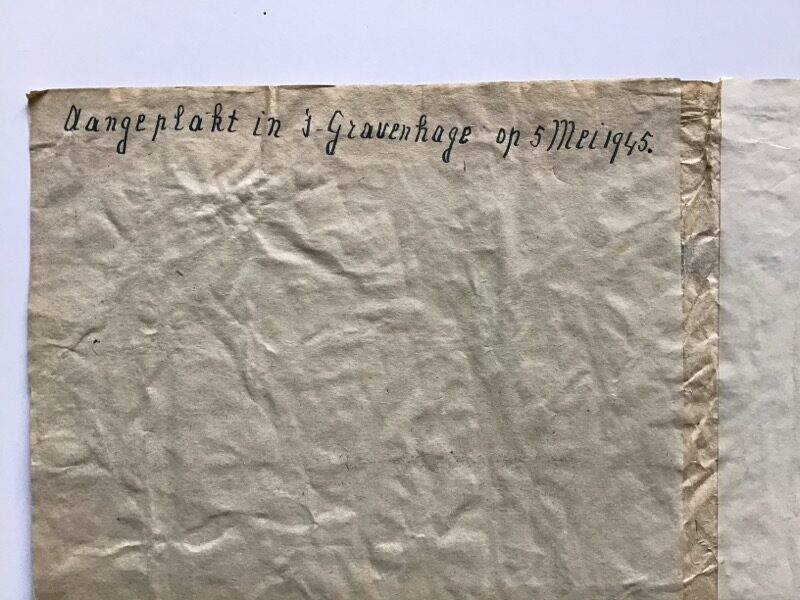 Aangeplakt in 's-Gravenhage op 5 Mei 1945.